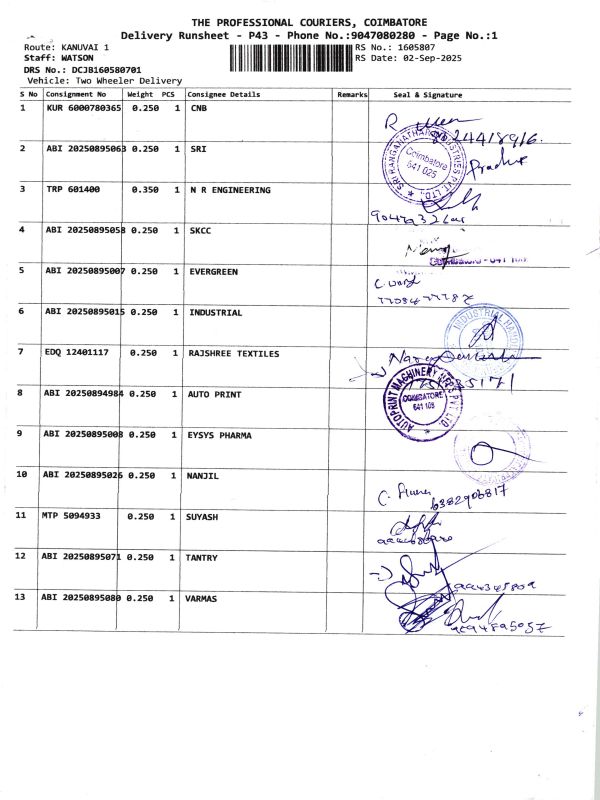 THE PROFESSIONAL COURIERS, COIMBATORE
Delivery Runsheet - P43 - Phone No.:9047080280 - Page No.:1
Route: KANUVAI 1
RS No.: 1605807
Staff: WATSON
RS Date: 02-Sep-2025
DRS No.: DCJB160580701
Vehicle: Two Wheeler Delivery
S No Consignment No Weight PCS Consignee Details Remarks Seal & Signature
1 KUR 6000780365 0.250 1 CNB
2 ABI 20250895063 0.250 1 SRI
SRI RANGANATHAR INDUSTRIES PVT. LTD.
Coimbatore
641 025
3 TRP 601400 0.350 1 N R ENGINEERING
4 ABI 20250895058 0.250 1 SKCC
5 ABI 20250895007 0.250 1 EVERGREEN
6 ABI 20250895015 0.250 1 INDUSTRIAL
7 EDQ 12401117 0.250 1 RAJSHREE TEXTILES
8 ABI 20250894984 0.250 1 AUTO PRINT
AUTOPRINT MACHINERY MFRS PVT. LTD.
COIMBATORE
9 ABI 20250895008 0.250 1 EYSYS PHARMA
10 ABI 20250895026 0.250 1 NANJIL
6382906817
11 MTP 5094933 0.250 1 SUYASH
12 ABI 20250895071 0.250 1 TANTRY
13 ABI 20250895080 0.250 1 VARMAS